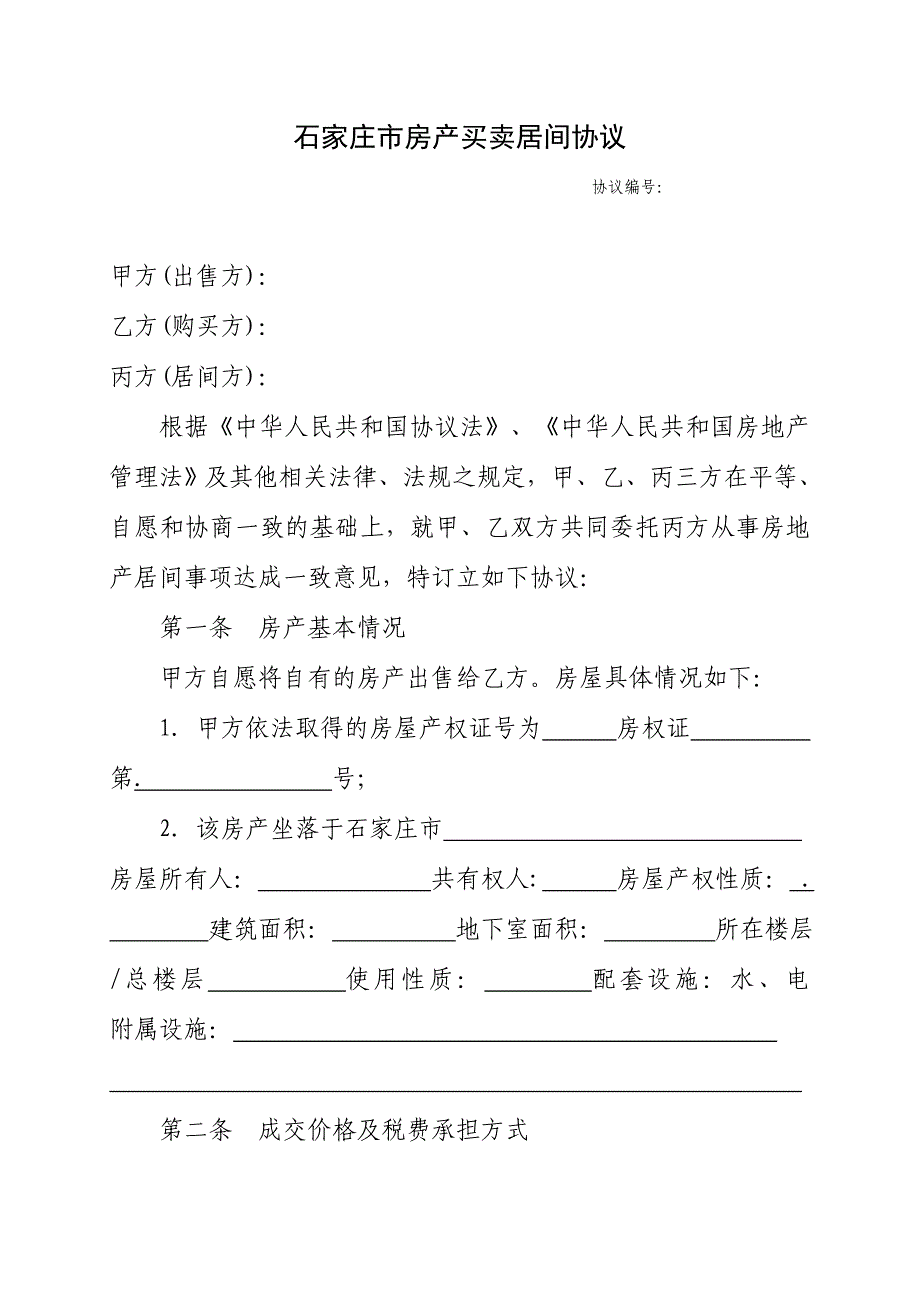 石家庄市房产买卖居间协议
协议编号：
甲方(出售方)：
乙方(购买方)：
丙方(居间方)：
根据《中华人民共和国协议法》、《中华人民共和国房地产
管理法》及其他相关法律、法规之规定，甲、乙、丙三方在平等、
自愿和协商一致的基础上，就甲、乙双方共同委托丙方从事房地
产居间事项达成一致意见，特订立如下协议：
第一条　房产基本情况
甲方自愿将自有的房产出售给乙方。房屋具体情况如下：
1．甲方依法取得的房屋产权证号为______房权证__________
第.________________号；
2．该房产坐落于石家庄市_____________________________
房屋所有人：______________共有权人：______房屋产权性质：_.
________建筑面积：__________地下室面积：_________所在楼层
/总楼层___________使用性质：_________配套设施：水、电
附属设施：____________________________________________
________________________________________________________
第二条　成交价格及税费承担方式